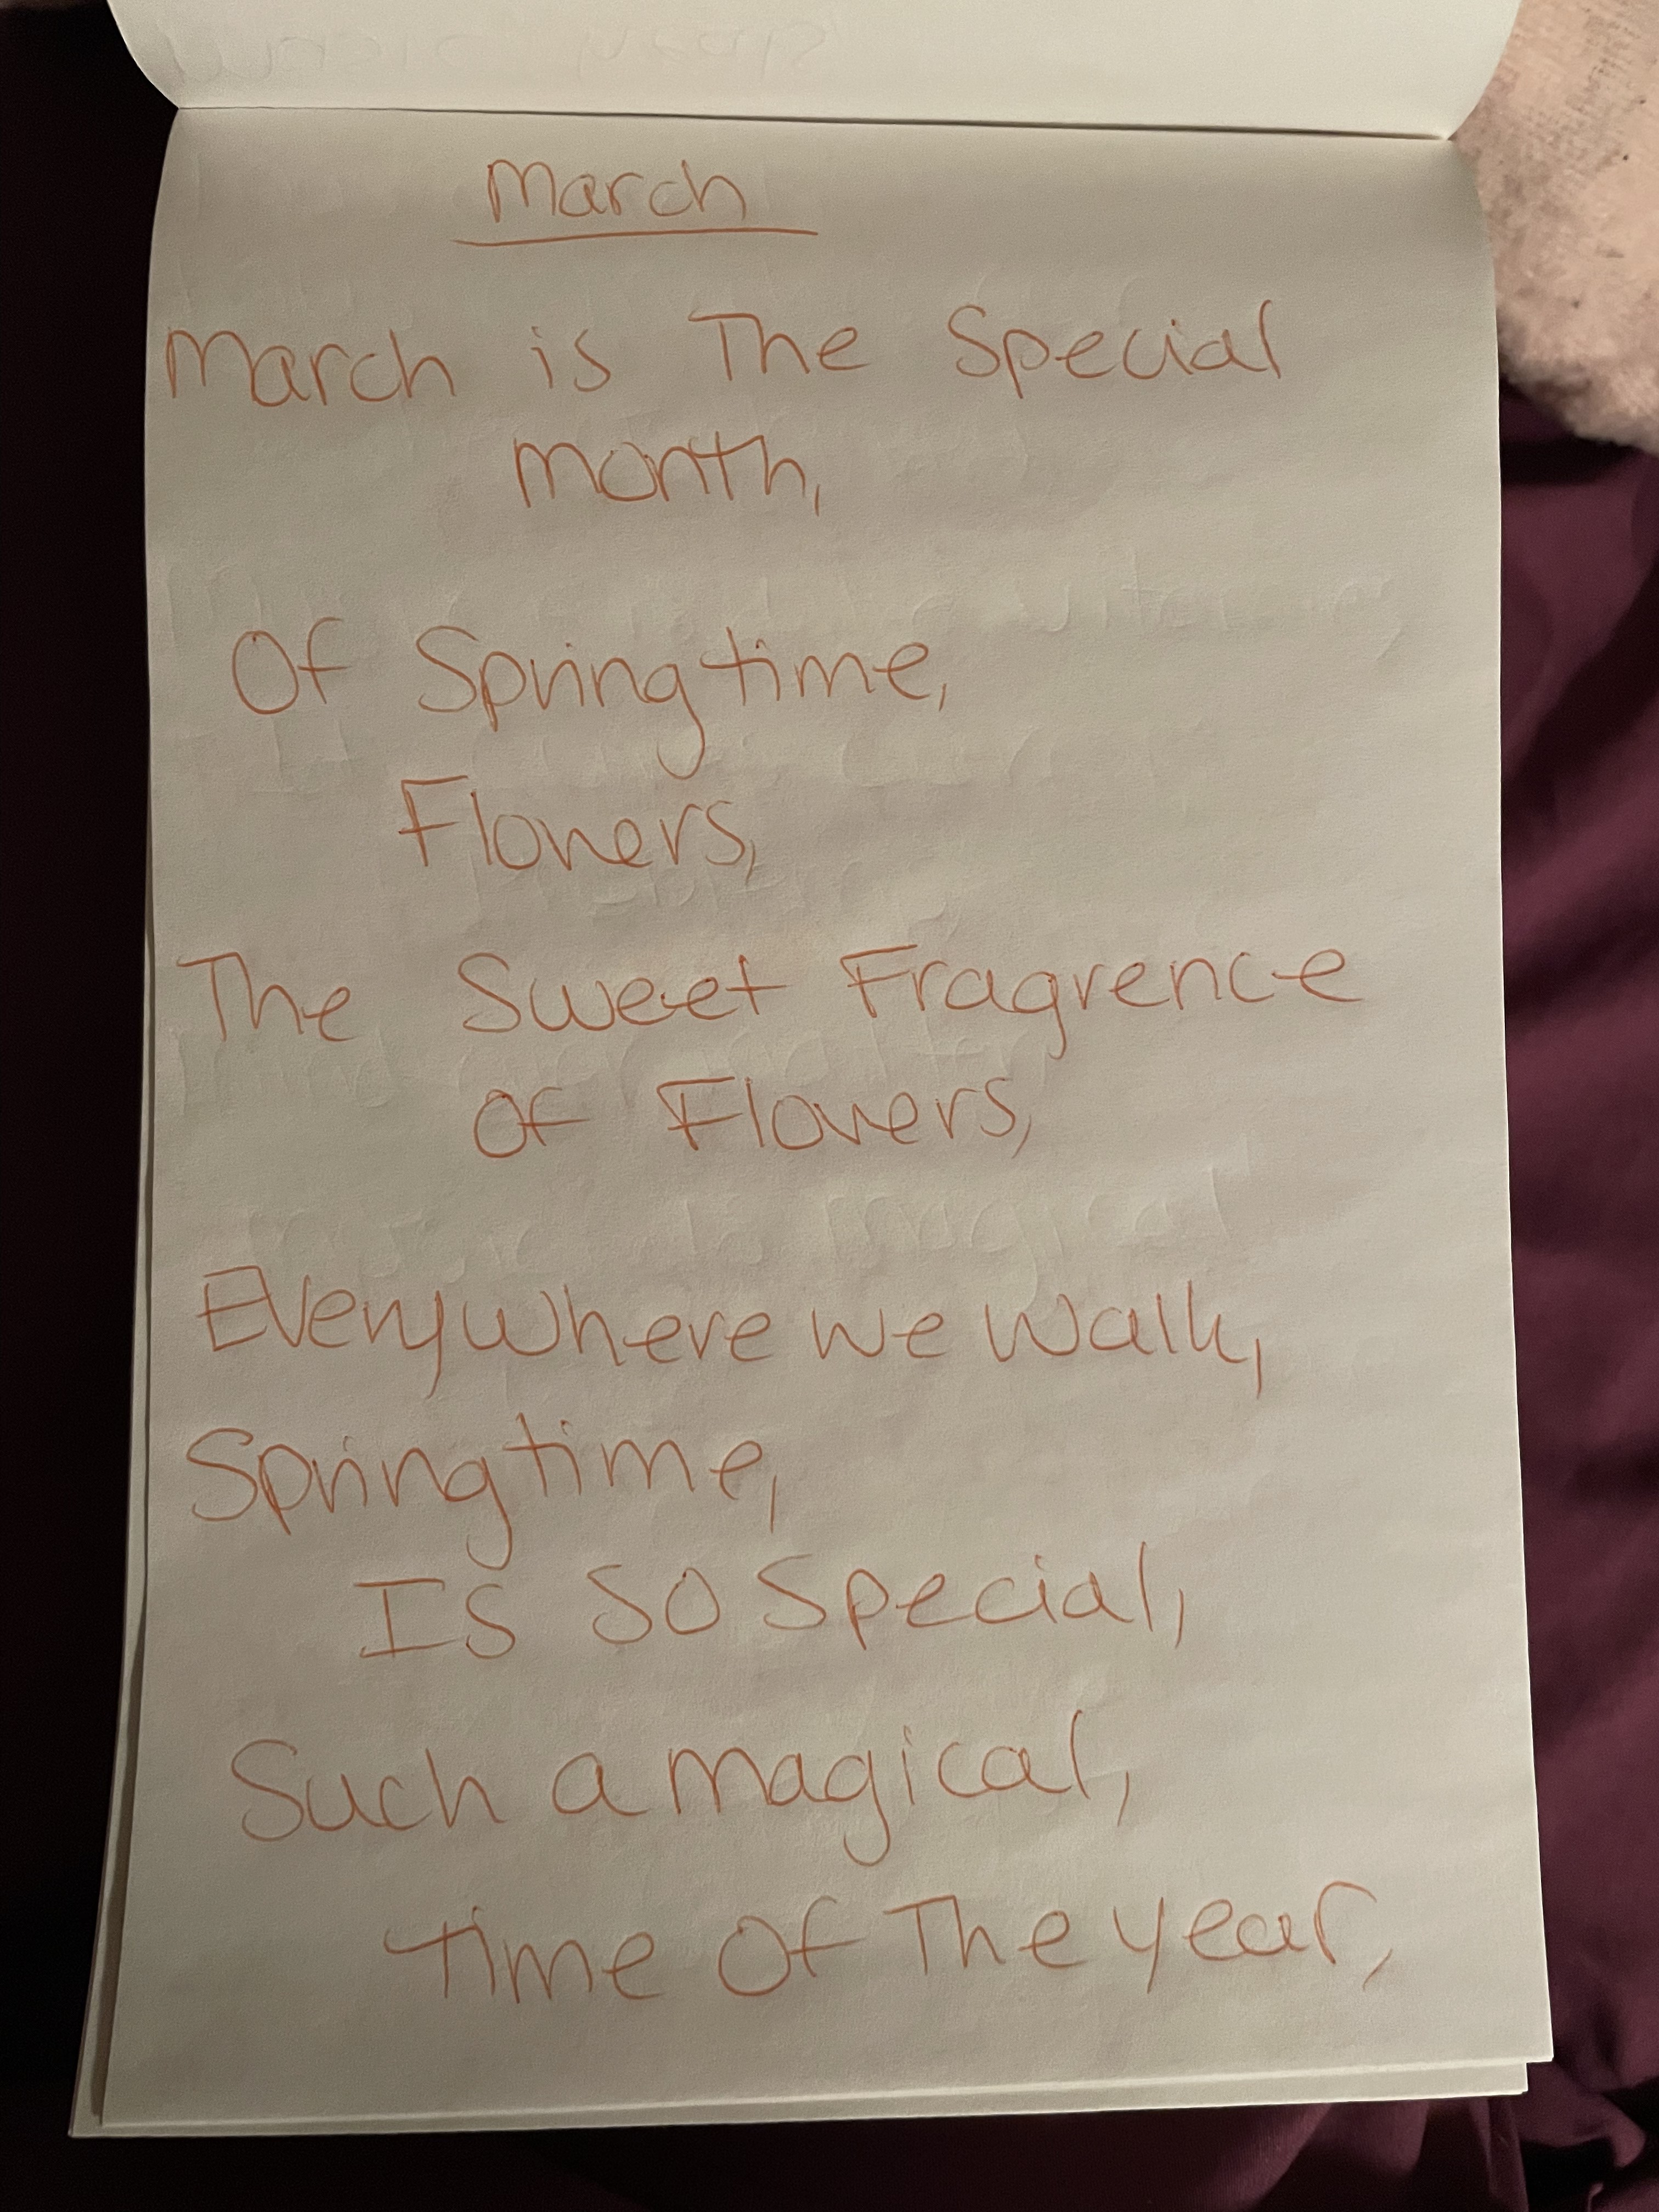 March
March is The Special
month,
Of Springtime,
Flowers,
The Sweet Fragrence
Of Flowers,
Everywhere we walk,
Springtime,
Is So Special,
Such a magical,
time Of The year,